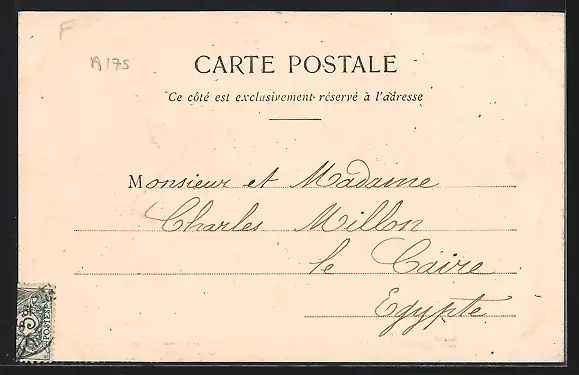 F
A175
CARTE POSTALE
Ce côté est exclusivement réservé à l'adresse
Monsieur et Madame
Charles Millon
le Caire
Egypte
POSTES